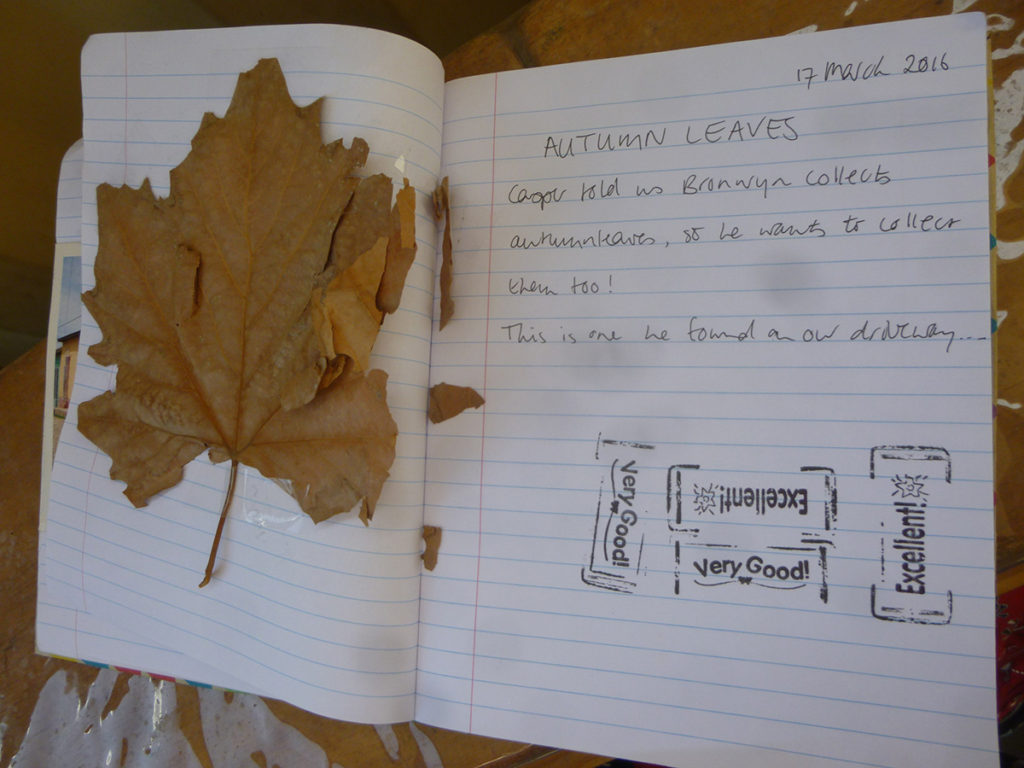 17 March 2016
AUTUMN LEAVES
Casper told us Bronwyn collects
autumn leaves, so he wants to collect
them too!
This is one he found on our driveway...
Very Good!
Excellent!
Very Good!
Excellent!